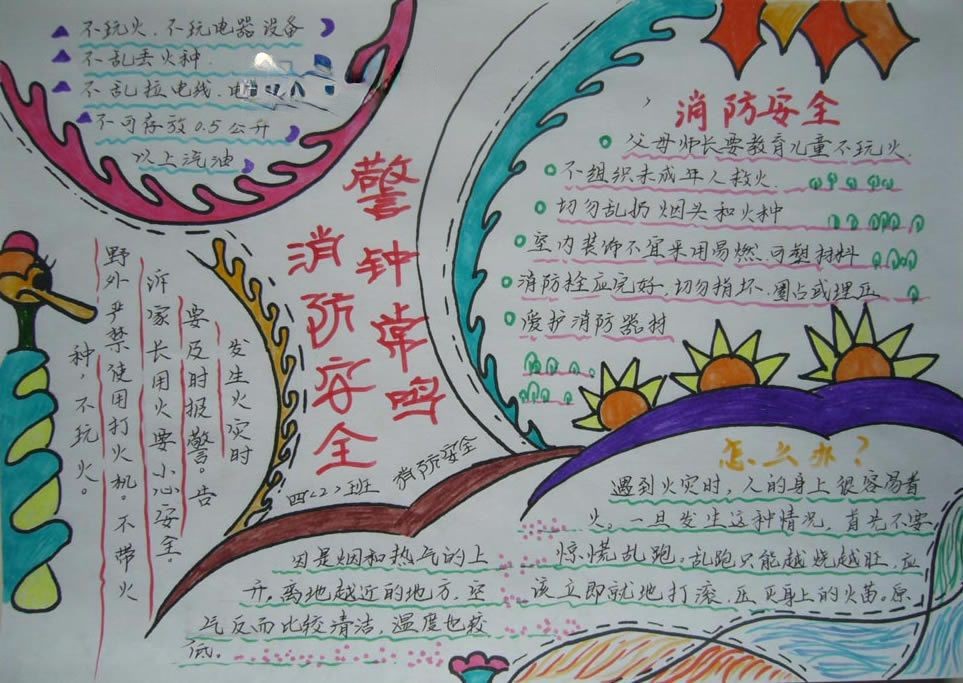 不玩火、不玩电器设备
不乱丢火种.
不乱拉电线、电
不可存放0.5公升
以上汽油
警钟常鸣
消防安全
消防安全
父母师长要教育儿童不玩火.
不组织未成年人救火.
切勿乱扔烟头和火种
室内装饰不宜采用易燃、可塑材料
消防栓应完好,切勿损坏、圈占或埋压
爱护消防器材
发生火灾时
要及时报警。告
诉家长用火要小心安全。
野外严禁使用打火机。不带火
种,不玩火。
四<2>班
消防安全
怎么办?
遇到火灾时,人的身上很容易着
火。一旦发生这种情况,首先不要
惊慌乱跑。乱跑只能越烧越旺,应
该立即就地打滚,压灭身上的火苗。原
因是烟和热气的上
升,离地越近的地方,空
气反而比较清洁,温度也较
低。